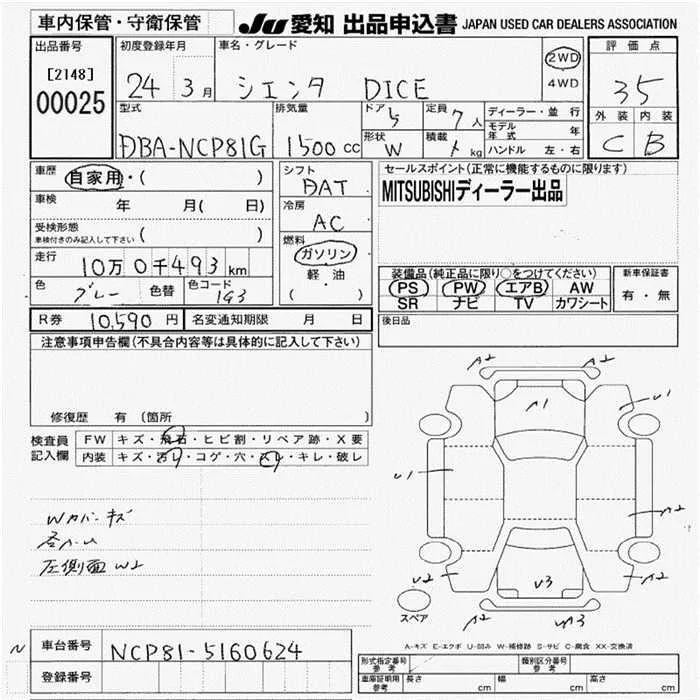 車内保管・守衛保管
JU 愛知 出品申込書 JAPAN USED CAR DEALERS ASSOCIATION
出品番号
[2148]
00025
初度登録年月
24 3 月
車名・グレード
シエンタ DICE
2WD
4WD
評価点
35
外装 内装
C B
型式
DBA-NCP81G
排気量
1500 cc
ドア
5
定員
7 人
形状
W
積載
kg
ディーラー・並行
モデル年式 年
ハンドル 左・右
車歴 自家用・( )
車検 年 月( 日)
受検形態 ( )
車検付きのみ記入して下さい
走行 10万0千493 km
色 グレー 色替 色コード 1G3
シフト
DAT
冷房
AC
燃料
ガソリン
軽油
( ・ )
セールスポイント(正常に機能するものに限ります)
MITSUBISHIディーラー出品
装備品(純正品に限り○をつけてください)
PS PW エアB AW
SR ナビ TV カワシート
新車保証書
有・無
R券 10,590 円 名変通知期限 月 日
後日品
注意事項申告欄(不具合内容等は具体的に記入して下さい)
修復歴 有(箇所 )
検査員記入欄
FW キズ・飛石・ヒビ割・リペア跡・X要
内装 キズ・汚レ・コゲ・穴・スレ・キレ・破レ
Wカバーキズ
左側面W2
A2 A2
A1
U1
U1
A2
U2 U3 A2
A2
スペア
A-キズ E-エクボ U-凹み W-補修跡 S-サビ C-腐食 XX-交換済
N
車台番号 NCP81-5160624
登録番号
型式指定番号 参考
類別区分番号 参考
車庫証明用 参考 長さ cm 幅 cm 高さ cm